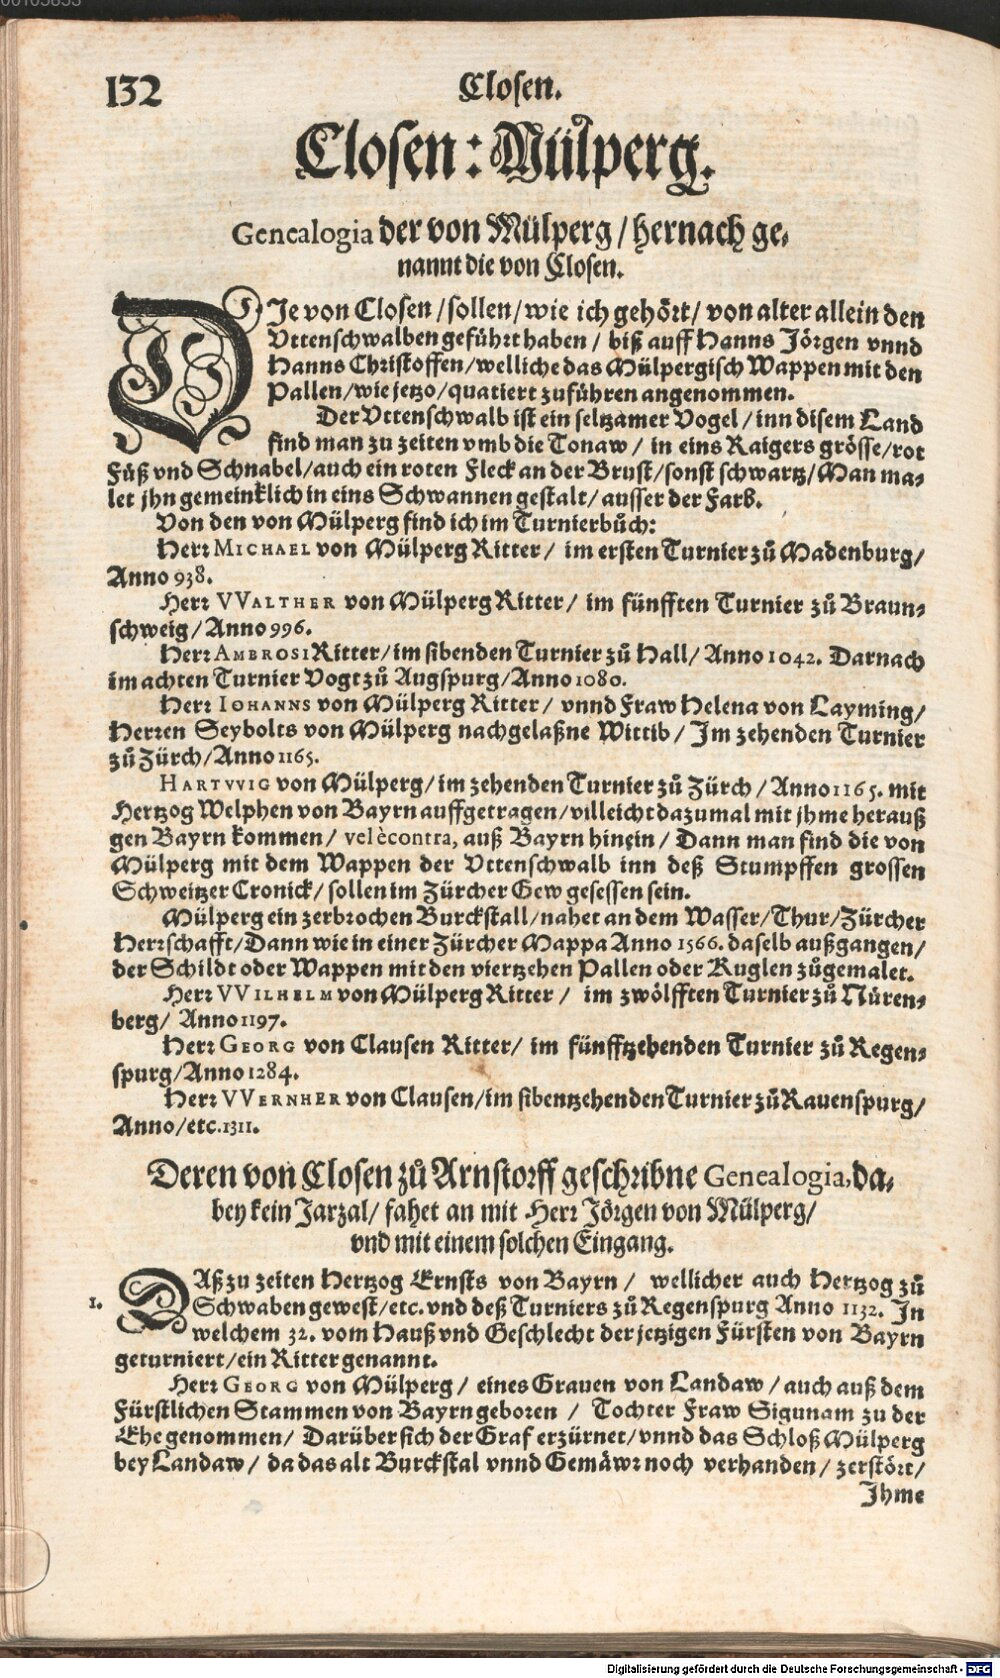 132
Closen.
Closen: Mülperg.
Genealogia der von Mülperg / hernach ge-
nannt die von Closen.
DIe von Closen / sollen / wie ich gehört / von alter allein den
Vttenschwalben geführt haben / biß auff Hanns Jörgen vnnd
Hanns Christoffen / welliche das Mülpergisch Wappen mit den
Pallen / wie jetzo / quatiert zuführen angenommen.
Der Vttenschwalb ist ein seltzamer Vogel / inn disem Land
find man zu zeiten vmb die Tonaw / in eins Raigers grösse / rot
Füß vnd Schnabel / auch ein roten Fleck an der Brust / sonst schwartz / Man ma-
let jhn gemeinklich in eins Schwannen gestalt / ausser der Farb.
Von den von Mülperg find ich im Turnierbůch:
Herr MICHAEL von Mülperg Ritter / im ersten Turnier zů Madenburg /
Anno 938.
Herr VVALTHER von Mülperg Ritter / im fünfften Turnier zů Braun-
schweig / Anno 996.
Herr AMBROSI Ritter / im sibenden Turnier zů Hall / Anno 1042. Darnach
im achten Turnier Vogt zů Augspurg / Anno 1080.
Herr IOHANNS von Mülperg Ritter / vnnd Fraw Helena von Layming /
Herren Seybolts von Mülperg nachgelaßne Wittib / Im zehenden Turnier
zů Zürch / Anno 1165.
HARTVVIG von Mülperg / im zehenden Turnier zů Zürch / Anno 1165. mit
Hertzog Welphen von Bayrn auffgetragen / villeicht dazumal mit jhme herauß
gen Bayrn kommen / vel ècontra, auß Bayrn hinein / Dann man find die von
Mülperg mit dem Wappen der Vttenschwalb inn deß Stumpffen grossen
Schweitzer Cronick / sollen im Zürcher Gew gesessen sein.
Mülperg ein zerbrochen Burckstall / nahet an dem Wasser / Thur / Zürcher
Herrschafft / Dann wie in einer Zürcher Mappa Anno 1566. daselb außgangen /
der Schildt oder Wappen mit den viertzehen Pallen oder Kuglen zůgemalet.
Herr VVILHELM von Mülperg Ritter / im zwölfften Turnier zů Nüren-
berg / Anno 1197.
Herr GEORG von Clausen Ritter / im fünfftzehenden Turnier zů Regen-
spurg / Anno 1284.
Herr VVERNHER von Clausen / im sibentzehenden Turnier zů Rauenspurg /
Anno / etc. 1311.
Deren von Closen zů Arnstorff geschribne Genealogia, da-
bey kein Jarzal / fahet an mit Herr Jörgen von Mülperg /
vnd mit einem solchen Eingang.
1. DAß zu zeiten Hertzog Ernsts von Bayrn / wellicher auch Hertzog zů
Schwaben gewest / etc. vnd deß Turniers zů Regenspurg Anno 1132. In
welchem 32. vom Hauß vnd Geschlecht der jetzigen Fürsten von Bayrn
geturniert / ein Ritter genannt.
Herr GEORG von Mülperg / eines Grauen von Landaw / auch auß dem
Fürstlichen Stammen von Bayrn geboren / Tochter Fraw Sigunam zu der
Ehe genommen / Darüber sich der Graf erzürnet / vnnd das Schloß Mülperg
bey Landaw / da das alt Burckstal vnnd Gemäwr noch verhanden / zerstört /
Jhme
Digitalisierung gefördert durch die Deutsche Forschungsgemeinschaft - DFG